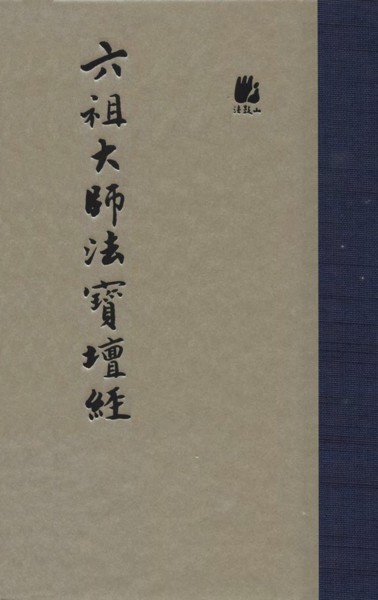 六祖大師法寶壇經
法鼓山